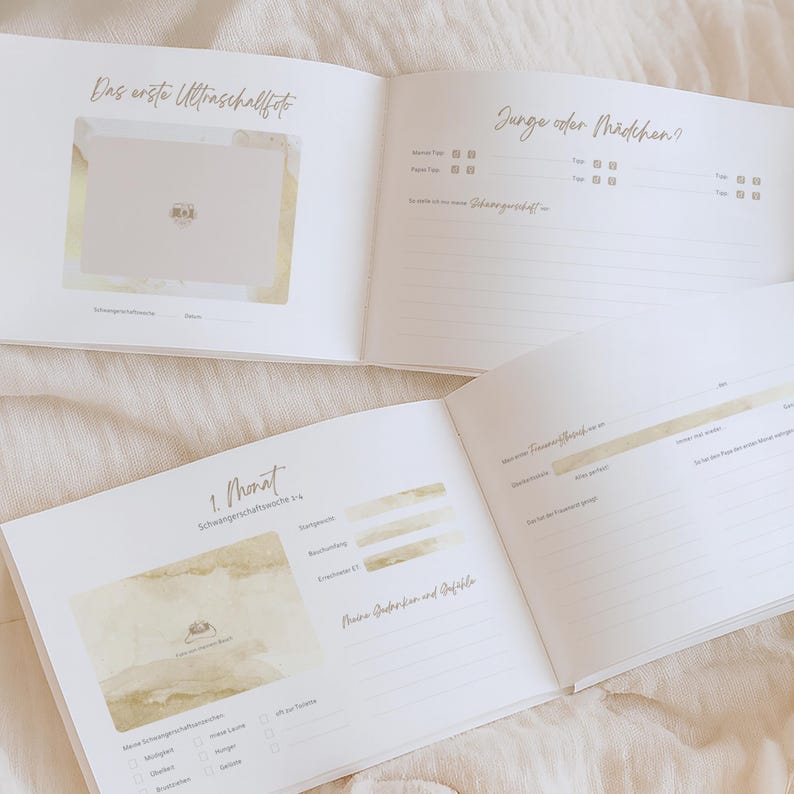 Das erste Ultraschallfoto
Schwangerschaftswoche: Datum:
Junge oder Mädchen?
Mamas Tipp: Tipp: Tipp:
Papas Tipp: Tipp: Tipp:
So stelle ich mir meine Schwangerschaft vor:
1. Monat
Schwangerschaftswoche 1-4
Startgewicht:
Bauchumfang:
Errechneter ET:
Foto von meinem Bauch
Meine Gedanken und Gefühle
Meine Schwangerschaftsanzeichen:
Müdigkeit miese Laune oft zur Toilette
Übelkeit Hunger
Brustziehen Gelüste
Mein erster Frauenarztbesuch war am , den
Übelkeitsskala:
Alles perfekt! Immer mal wieder...
Das hat der Frauenarzt gesagt: So hat dein Papa den ersten Monat